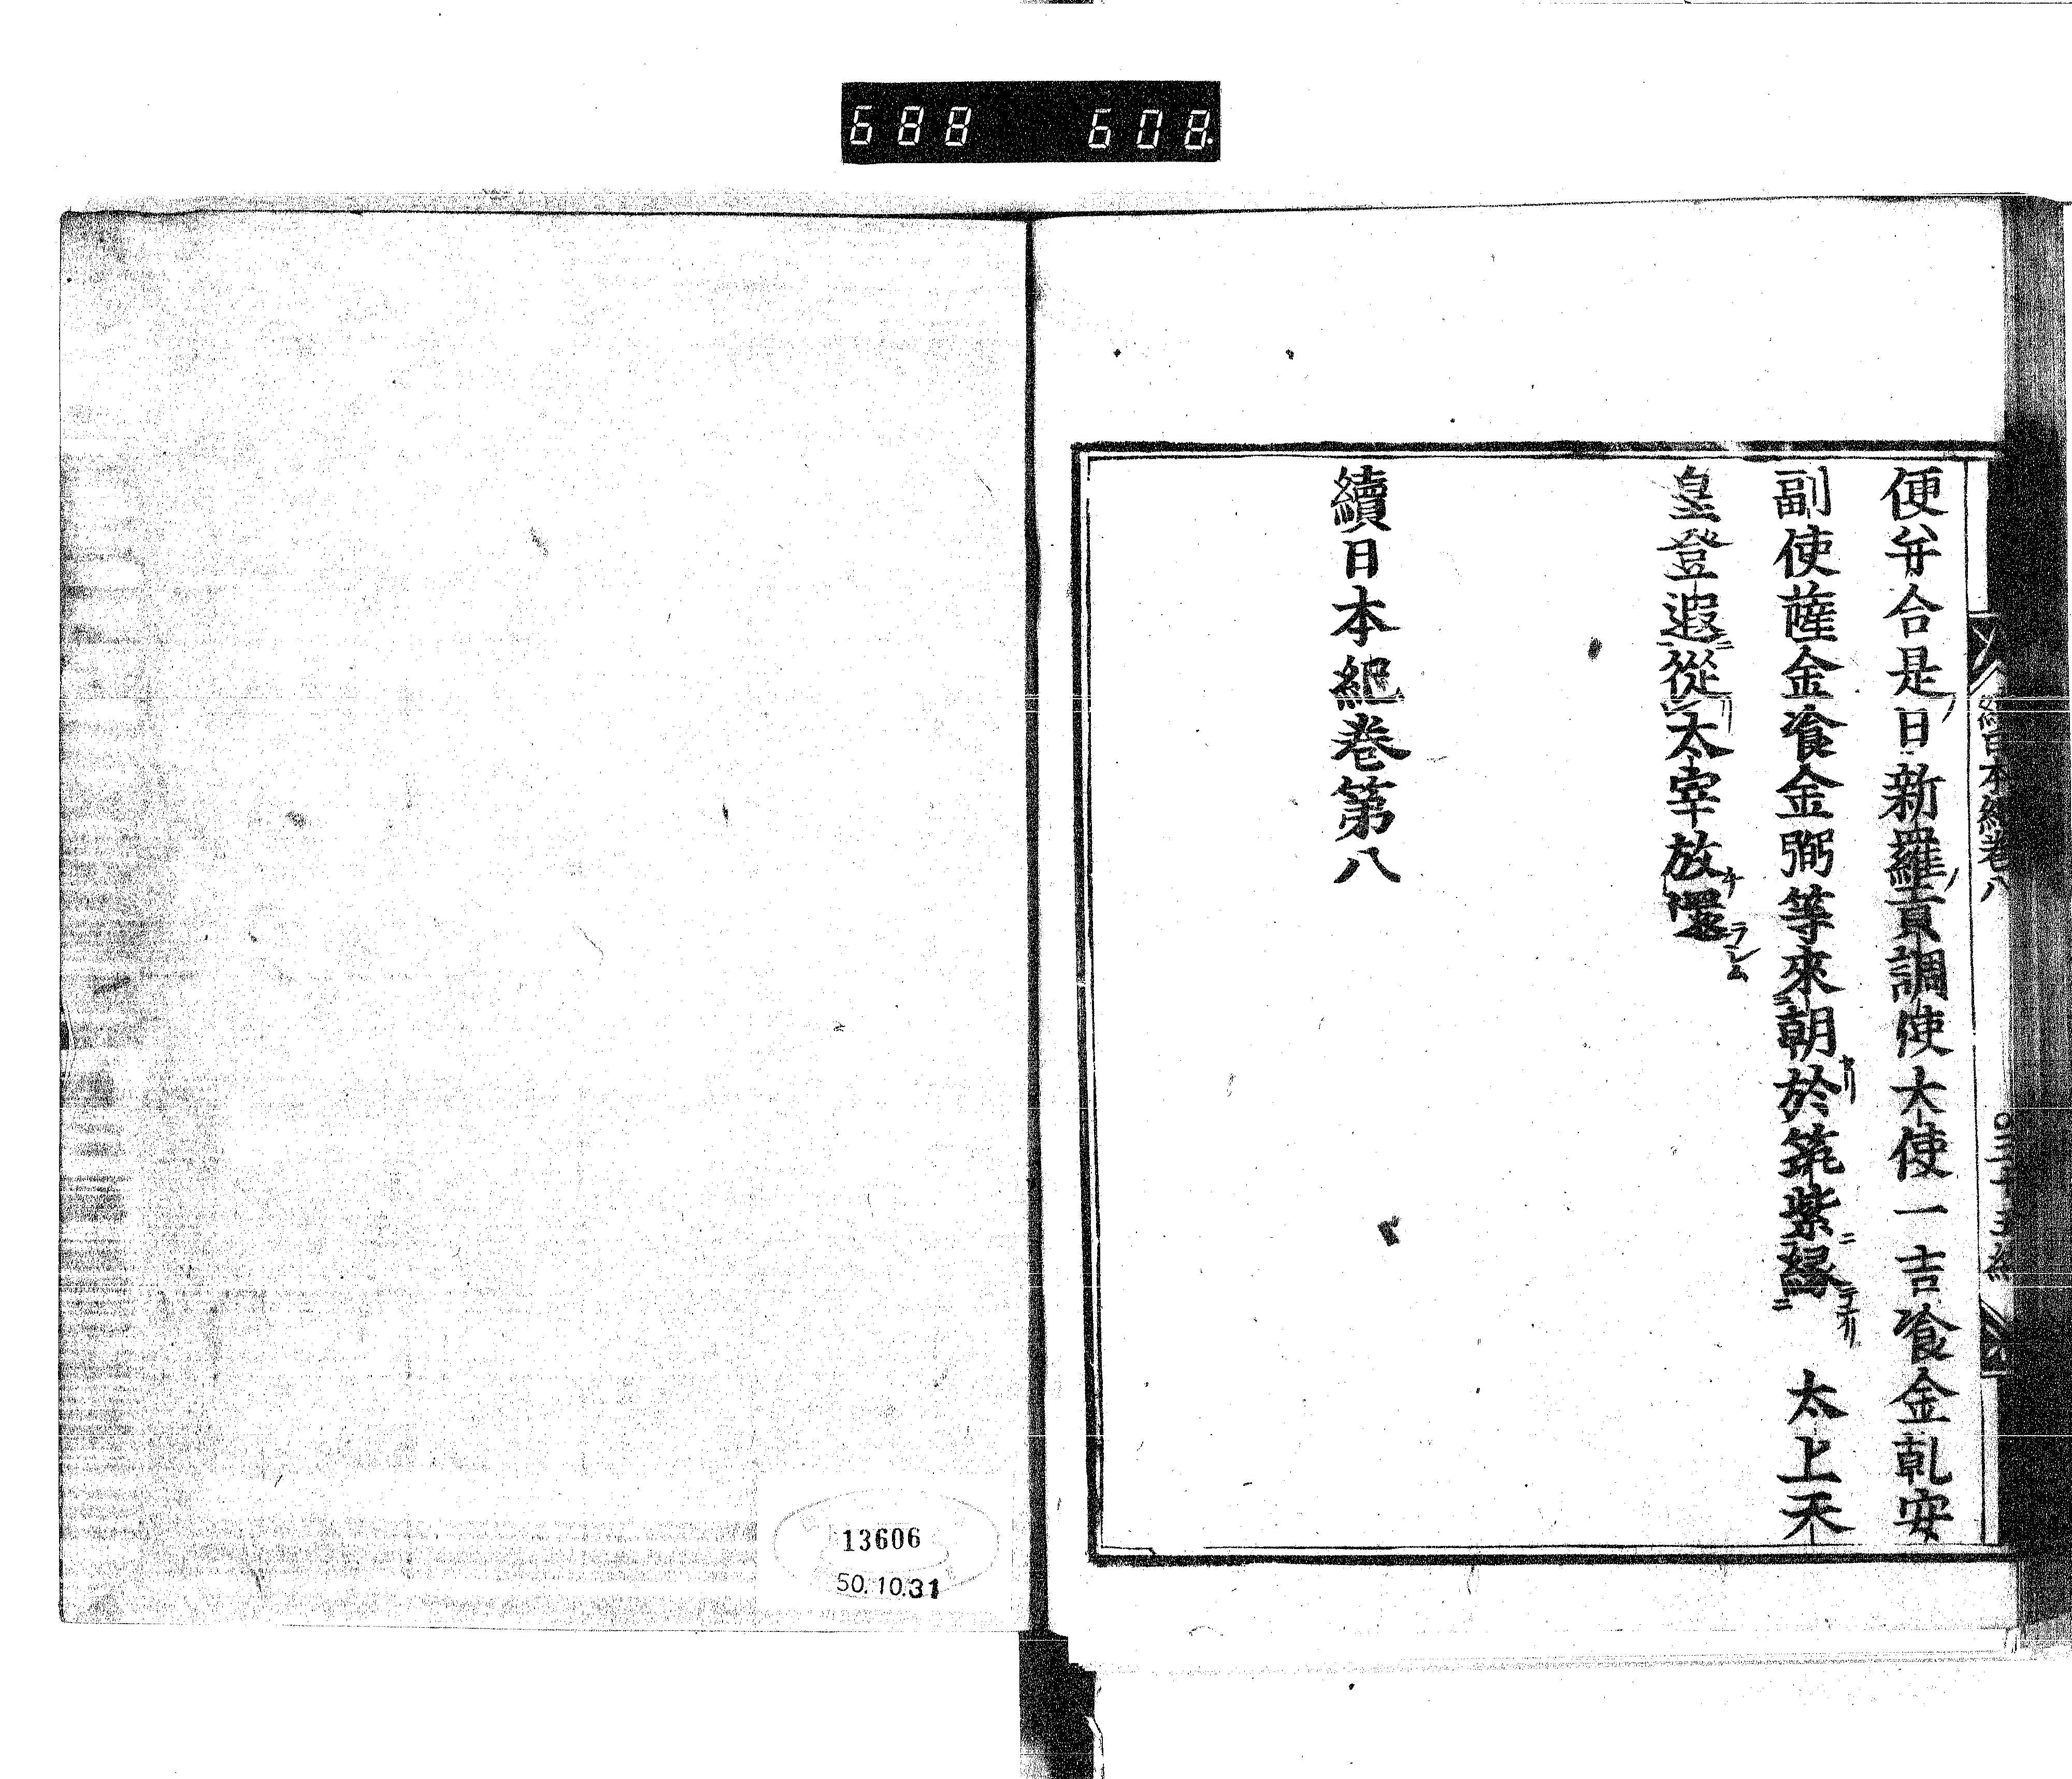 688 608.
續日本紀卷八
○三十五終
便并合是日新羅貢調使大使一吉飡金乹安
副使薩金飡金弼等來朝於筑紫緣 太上天
皇登遐從太宰放還
續日本紀卷第八
13606
50.10.31